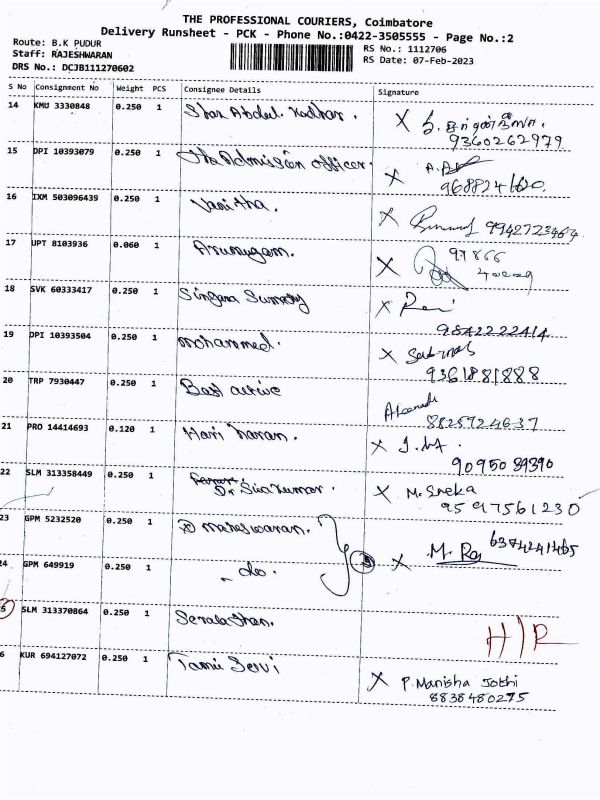 THE PROFESSIONAL COURIERS, Coimbatore
Delivery Runsheet - PCK - Phone No.:0422-3505555 - Page No.:2
Route: B.K PUDUR
RS No.: 1112706
Staff: RAJESHWARAN
RS Date: 07-Feb-2023
DRS No.: DCJB111270602
S No Consignment No Weight PCS Consignee Details Signature
14 KMU 3330848 0.250 1 Abdul X
9360262979
15 DPI 10393079 0.250 1 The Admission officer. X
9688241620.
16 IXM 503096439 0.250 1 Vanitha. X 9942723464
17 UPT 8103936 0.060 1 Arumugam. X 97866
40009
18 SVK 60333417 0.250 1 Singara X Ravi
9842222414
19 DPI 10393504 0.250 1 Mohammed. X
9361881888
20 TRP 7930447 0.250 1 Best active
8825724637
21 PRO 14414693 0.120 1 Hari Haran. X
90950 89390
22 SLM 313358449 0.250 1 Dr Siva Kumar. X M. Sneka
9597561230
23 GPM 5232520 0.250 1 Maheswaran. X M. Raj 6374241465
24 GPM 649919 0.250 1 - do.
25 SLM 313370864 0.250 1 H/R
6 KUR 694127072 0.250 1 Tamil Selvi X P. Manisha Jothi
8838480275